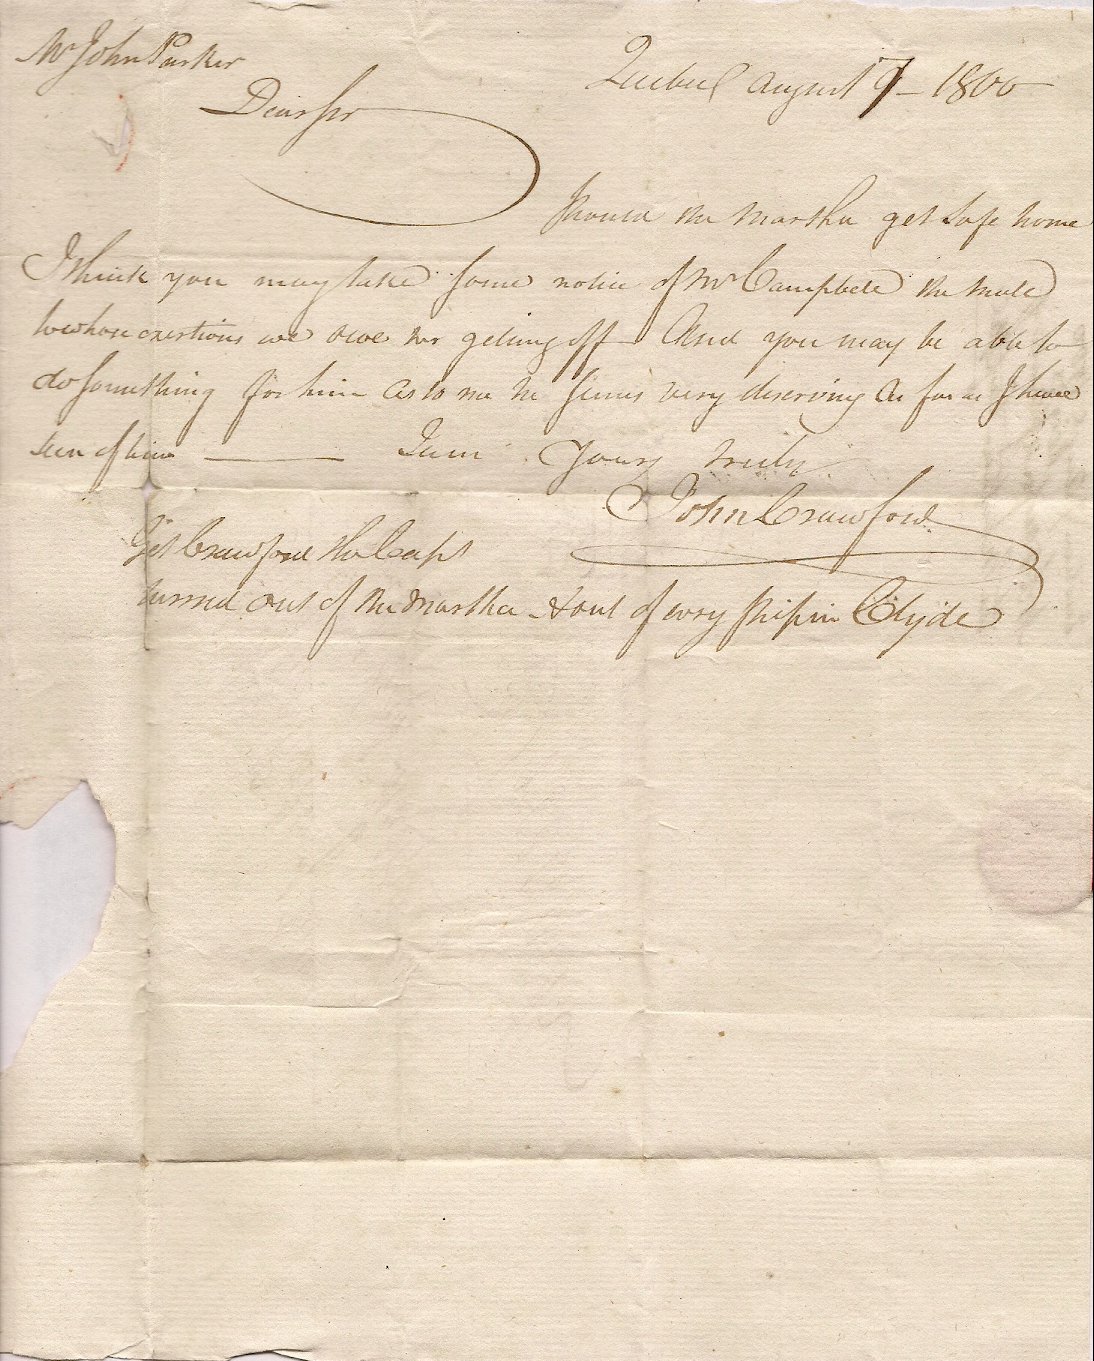 Mr John Parker
Quebec August 17 - 1800
Dear Sir
Should the Martha get safe home
I think you may take some notice of Mr Campbele the Mate
to whose exertions we owe her geting off - And you may be able to
do something for him as to me he seems very deserving as far as I have
seen of him ——— I am Yours truly
John Crawford
Get Crawford the Capt
turned out of the Martha & out of every ship in Clyde